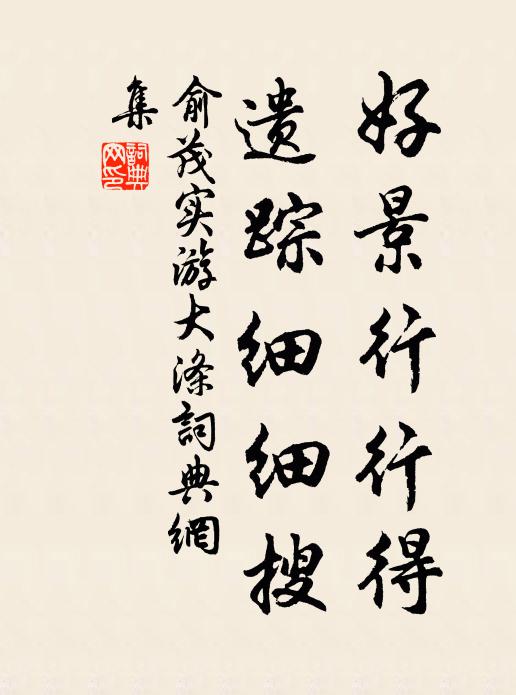 好景行行得
遗踪细细搜
俞茂实游大涤詞典網
集
詞典網印